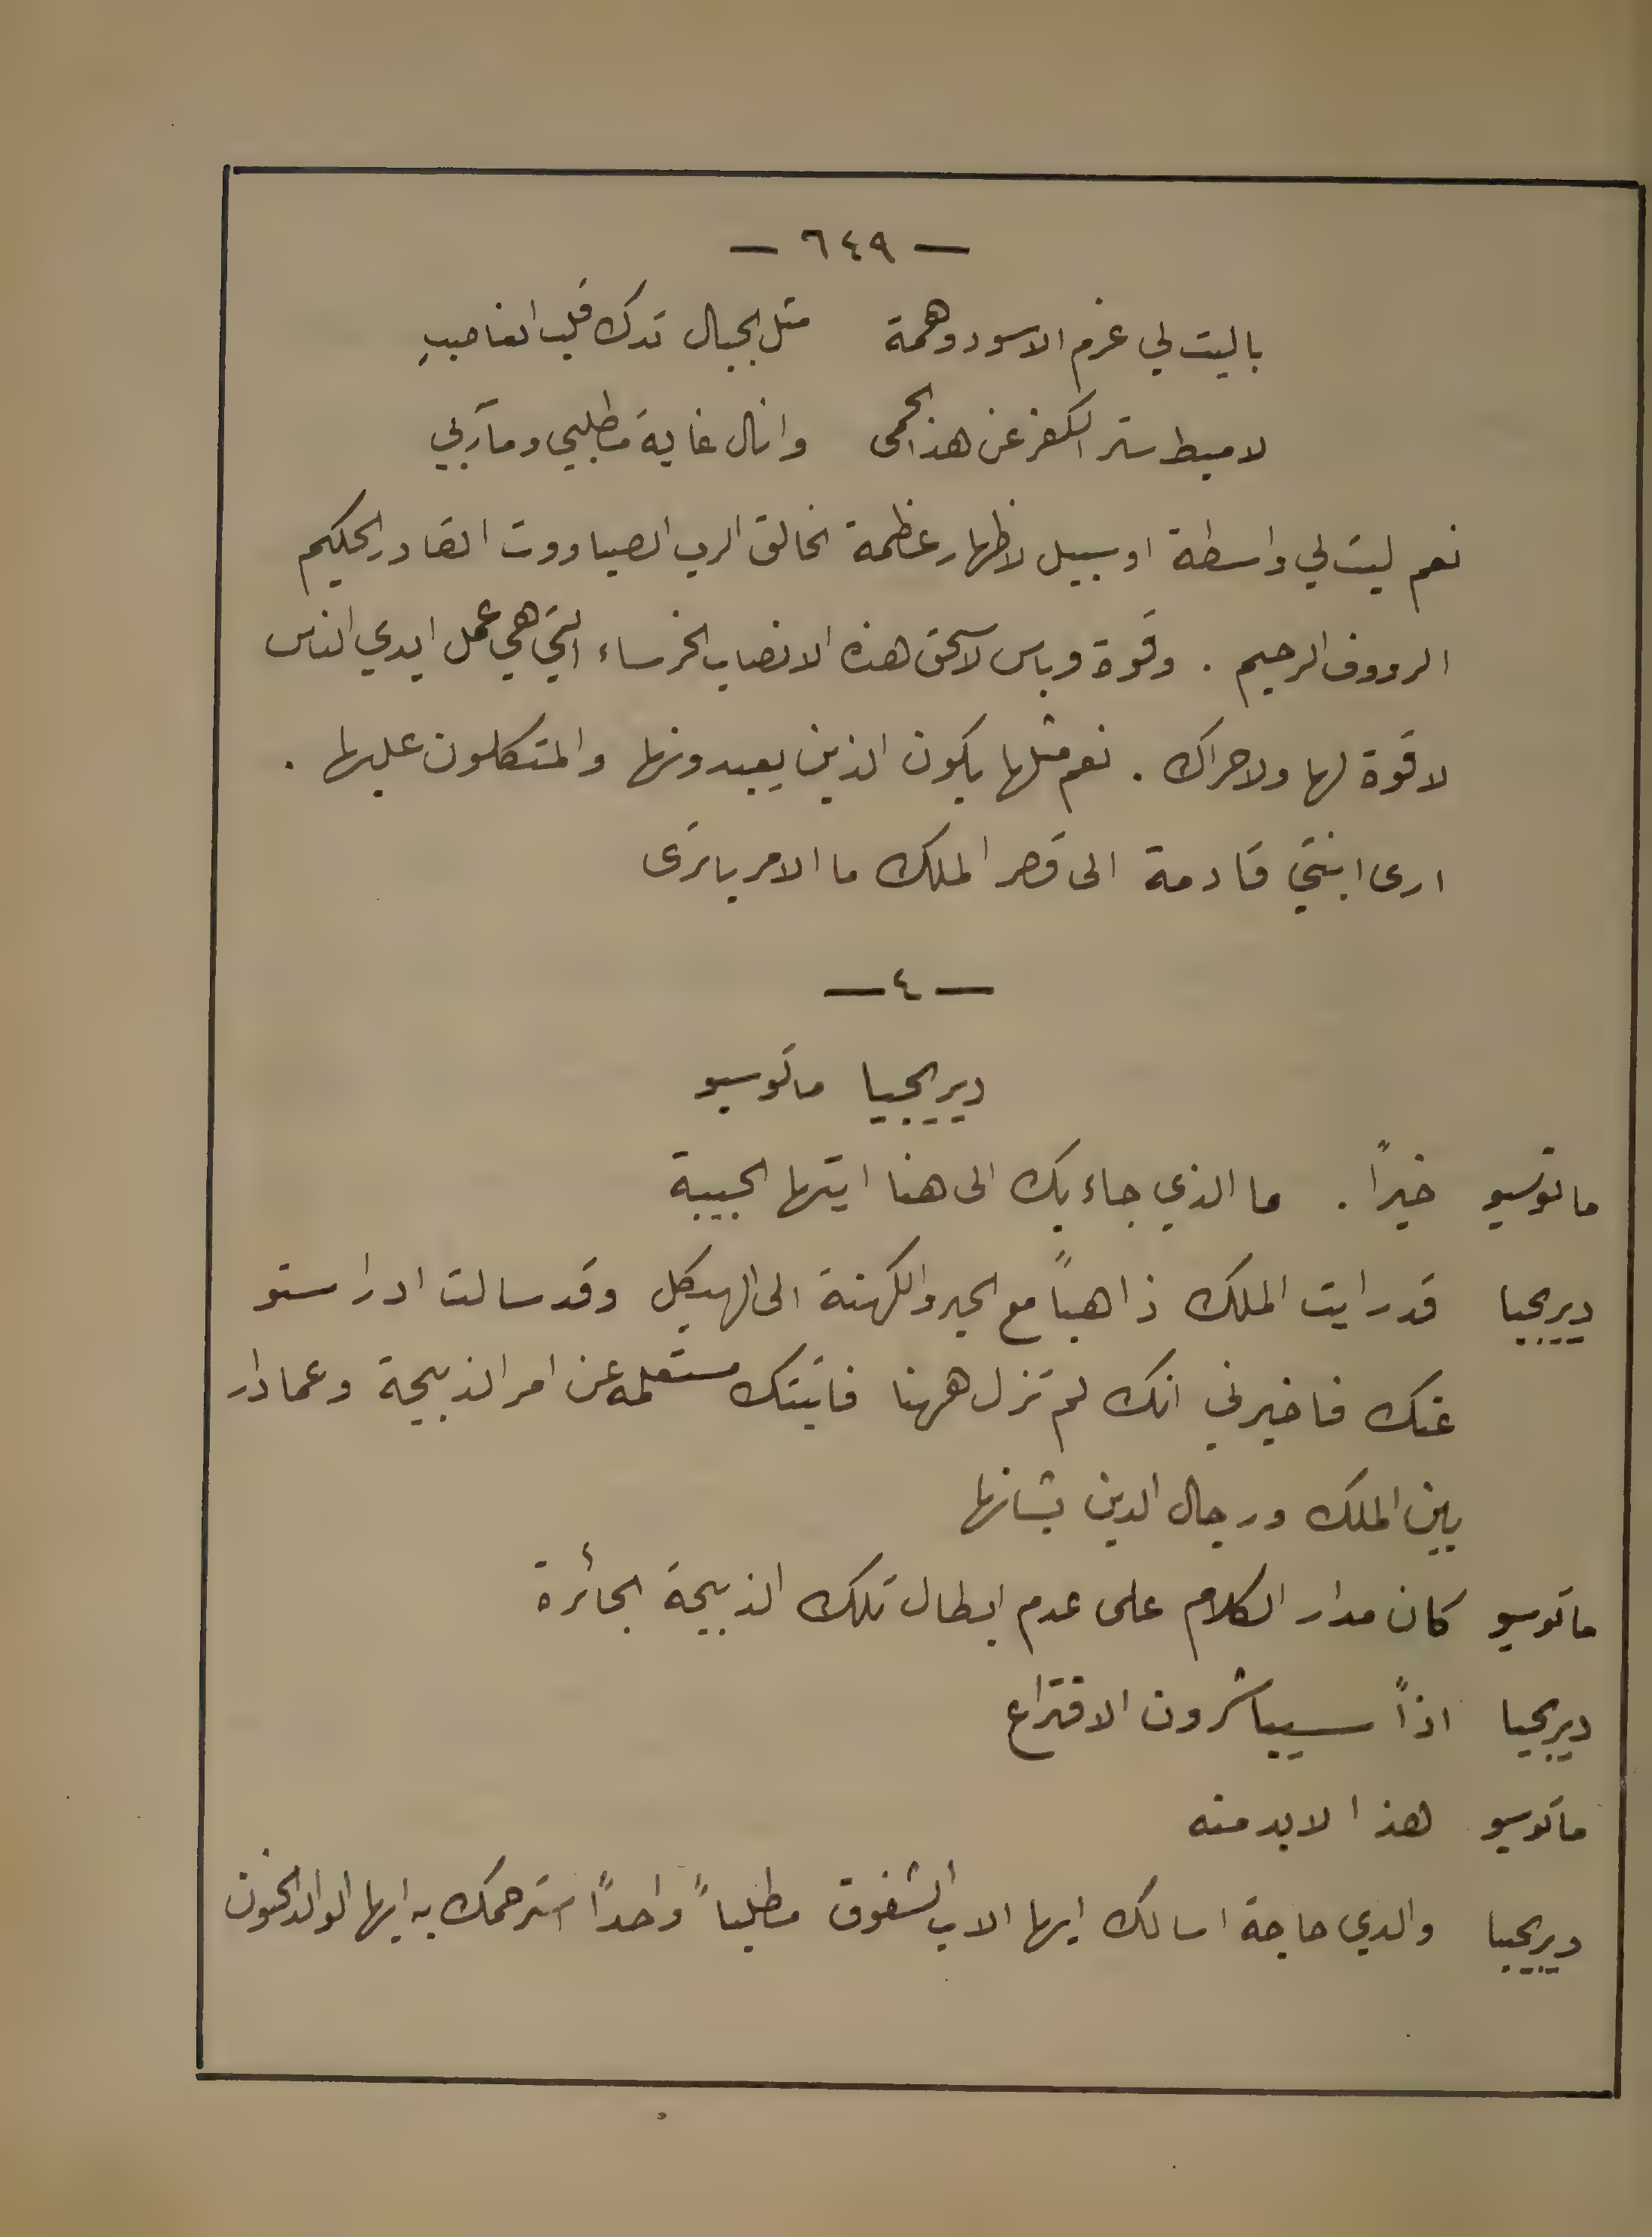 — ٦٤٩ —
ياليت لي عزم الاسود وهمة مثل الجبال تدك قلب الغاصبِ
لاميط ستر الكفر عن هذا الحمى وانال غاية مطلبي ومآربي
نعم ليت لي واسطة او سبيل لاظهار عظمة الخالق الرب الصباووت القادر الحكيم
الرووف الرحيم . وقوة وباس لاسحق هذه الانصاب الخرساء التي هي عمل ايدي الناس
لا قوة لها ولاحراك . نعم مثلها يكون الذين يعبدونها والمتكلون عليها .
ارى ابنتي قادمة الى قصر الملك ما الامر ياترى
— ٤ —
ديريجيا ماتوسيو
ماتوسيو خيرًا . ما الذي جاء بك الى هنا ايتها الحبيبة
ديريجيا قد رايت الملك ذاهباً مع الحبر والكهنة الى الهيكل وقد سالت ادراستو
عنك فاخبرني انك لم تزل ههنا فاتيتك مستعلمه عن امر الذبيحة وعما دار
بين الملك ورجال الدين بشانها
ماتوسيو كان مدار الكلام على عدم ابطال تلك الذبيحة الجائرة
ديريجيا اذاً سيباشرون الاقتراع
ماتوسيو هذا لابد منه
ديريجيا والدي حاجة اسالك ايها الاب الشفوق مطلباً واحداً استرحمك به ايها الوالد الحنون